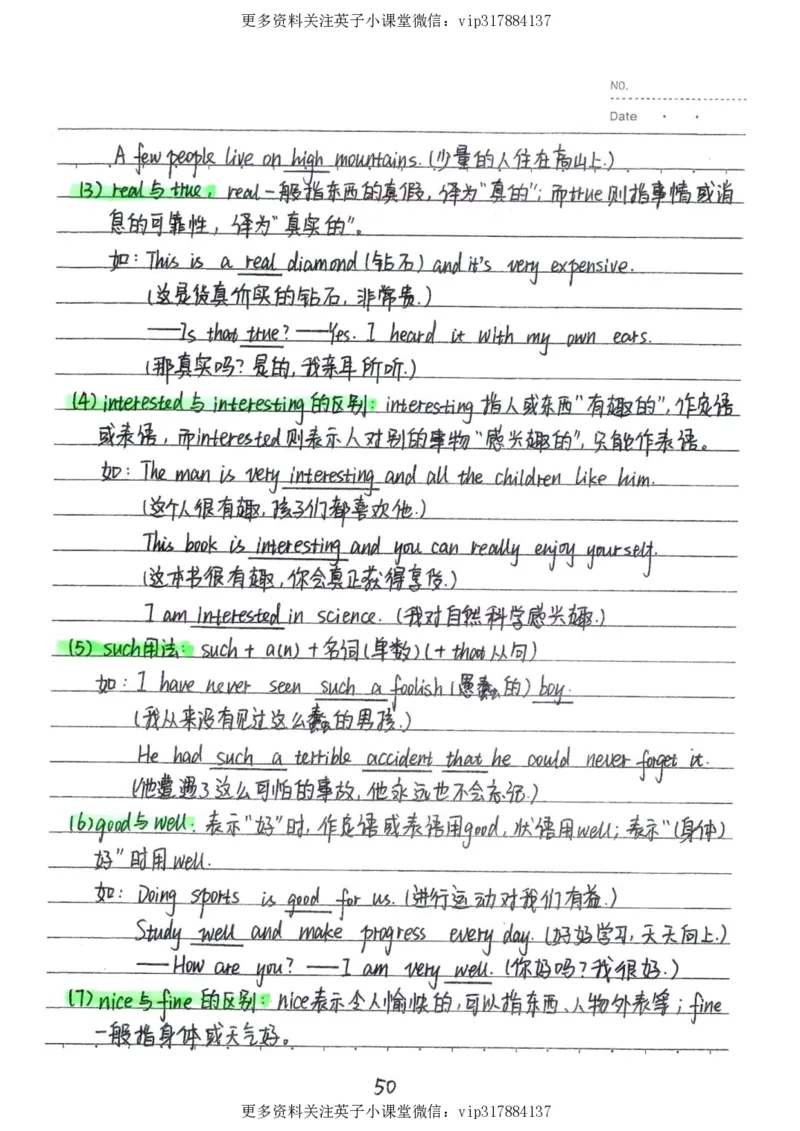 更多资料关注英子小课堂微信：vip317884137
NO.
Date
A few people live on high mountains. (少量的人住在高山上.)
(3) real与true, real一般指东西的真假，译为"真的"；而true则指事情或消
息的可靠性，译为"真实的"。
如：This is a real diamond (钻石) and it's very expensive.
(这是货真价实的钻石，非常贵.)
——Is that true? ——Yes. I heard it with my own ears.
(那真实吗？是的，我亲耳所听.)
(4) interested与interesting的区别：interesting指人或东西"有趣的"，作定语
或表语，而interested则表示人对别的事物"感兴趣的"，只能作表语。
如：The man is very interesting and all the children like him.
(这个人很有趣，孩子们都喜欢他.)
This book is interesting and you can really enjoy yourself.
(这本书很有趣，你会真正获得享受.)
I am interested in science. (我对自然科学感兴趣.)
(5) such用法：such + a(n) + 名词(单数)(+ that从句)
如：I have never seen such a foolish (愚蠢的) boy.
(我从来没有见过这么蠢的男孩.)
He had such a terrible accident that he could never forget it.
(他遭遇了这么可怕的事故，他永远也不会忘记.)
(6) good与well：表示"好"时，作定语或表语用good，状语用well；表示"(身体)
好"时用well.
如：Doing sports is good for us. (进行运动对我们有益.)
Study well and make progress every day. (好好学习，天天向上.)
——How are you? ——I am very well. (你好吗？我很好.)
(7) nice与fine的区别：nice表示令人愉快的，可以指东西、人物外表等；fine
一般指身体或天气好。
50
更多资料关注英子小课堂微信：vip317884137